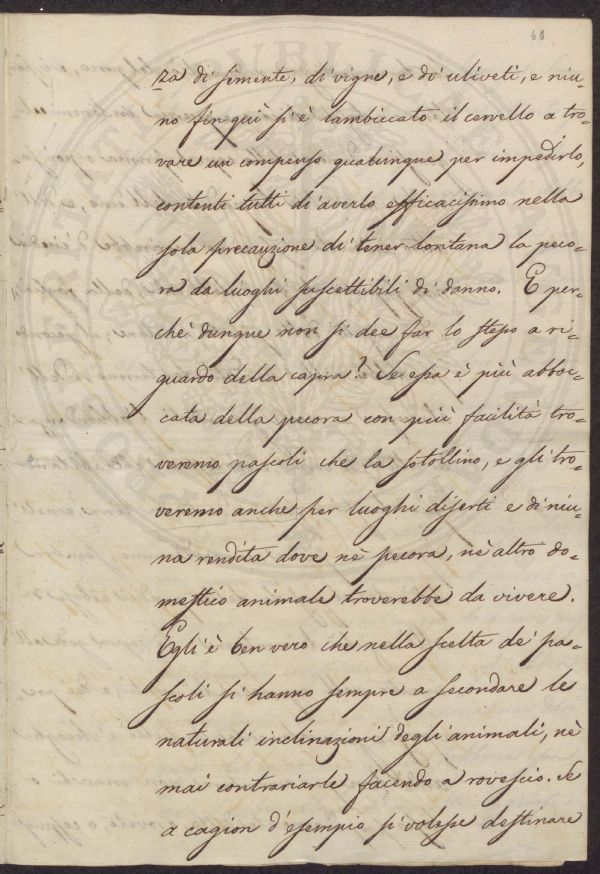 41
za di simente, di vigne, e di uliveti, e niu-
no fin quì si è lambiccato il cervello a tro-
vare un compenso qualunque per impedirlo,
contenti tutti di averlo efficacissimo nella
sola precauzione di tener lontana la peco-
ra da luoghi suscettibili di danno. E per-
chè dunque non si dee far lo stesso a ri-
guardo della capra? Se essa è più abboc-
cata della pecora con più facilità tro-
veremo pascoli che la satollino, e gli tro-
veremo anche per luoghi diserti e di niu-
na rendita dove nè pecora, nè altro do-
mestico animale troverebbe da vivere.
Egli è ben vero che nella scelta de' pa-
scoli si hanno sempre a secondare le
naturali inclinazioni degli animali, nè
mai contrariarle facendo a rovescio. Se
a cagion d'esempio si volesse destinare